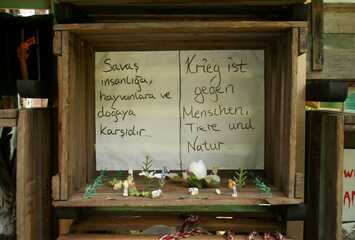 Savaş
insanlığa,
hayvanlara ve
doğaya
karşıdır
Krieg ist
gegen
Menschen,
Tiere und
Natur